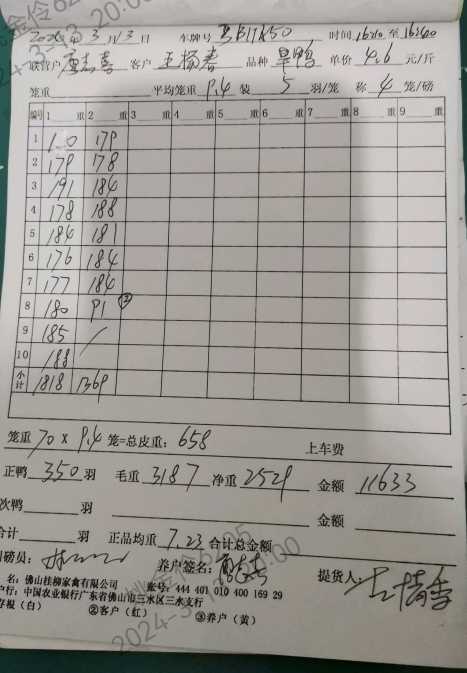 2024年3月13日 车牌号 时间 至
联营户 客户 王杨春 品种 旱鸭 单价 4.6 元/斤
笼重 平均笼重 9.4 装 5 羽/笼 称 4 笼/磅
编号 1 重 2 重 3 重 4 重 5 重 6 重 7 重 8 重 9 重
1 179
2 179 178
3 191 184
4 178 188
5 184 181
6 176 184
7 177 184
8 180 91 ②
9 185 /
10 188
小计 1818 1369
笼重 70 × 9.4 笼=总皮重: 658 上车费
正鸭 350 羽 毛重 3187 净重 2529 金额 11633
次鸭 羽 金额
合计 羽 正品均重 7.23 合计总金额
司磅员: 养户签名: 提货人:
名: 佛山桂柳家禽有限公司 账号: 444 401 010 400 169 29
户行: 中国农业银行广东省佛山市三水区三水支行
存根（白） ②客户（红） ③养户（黄）